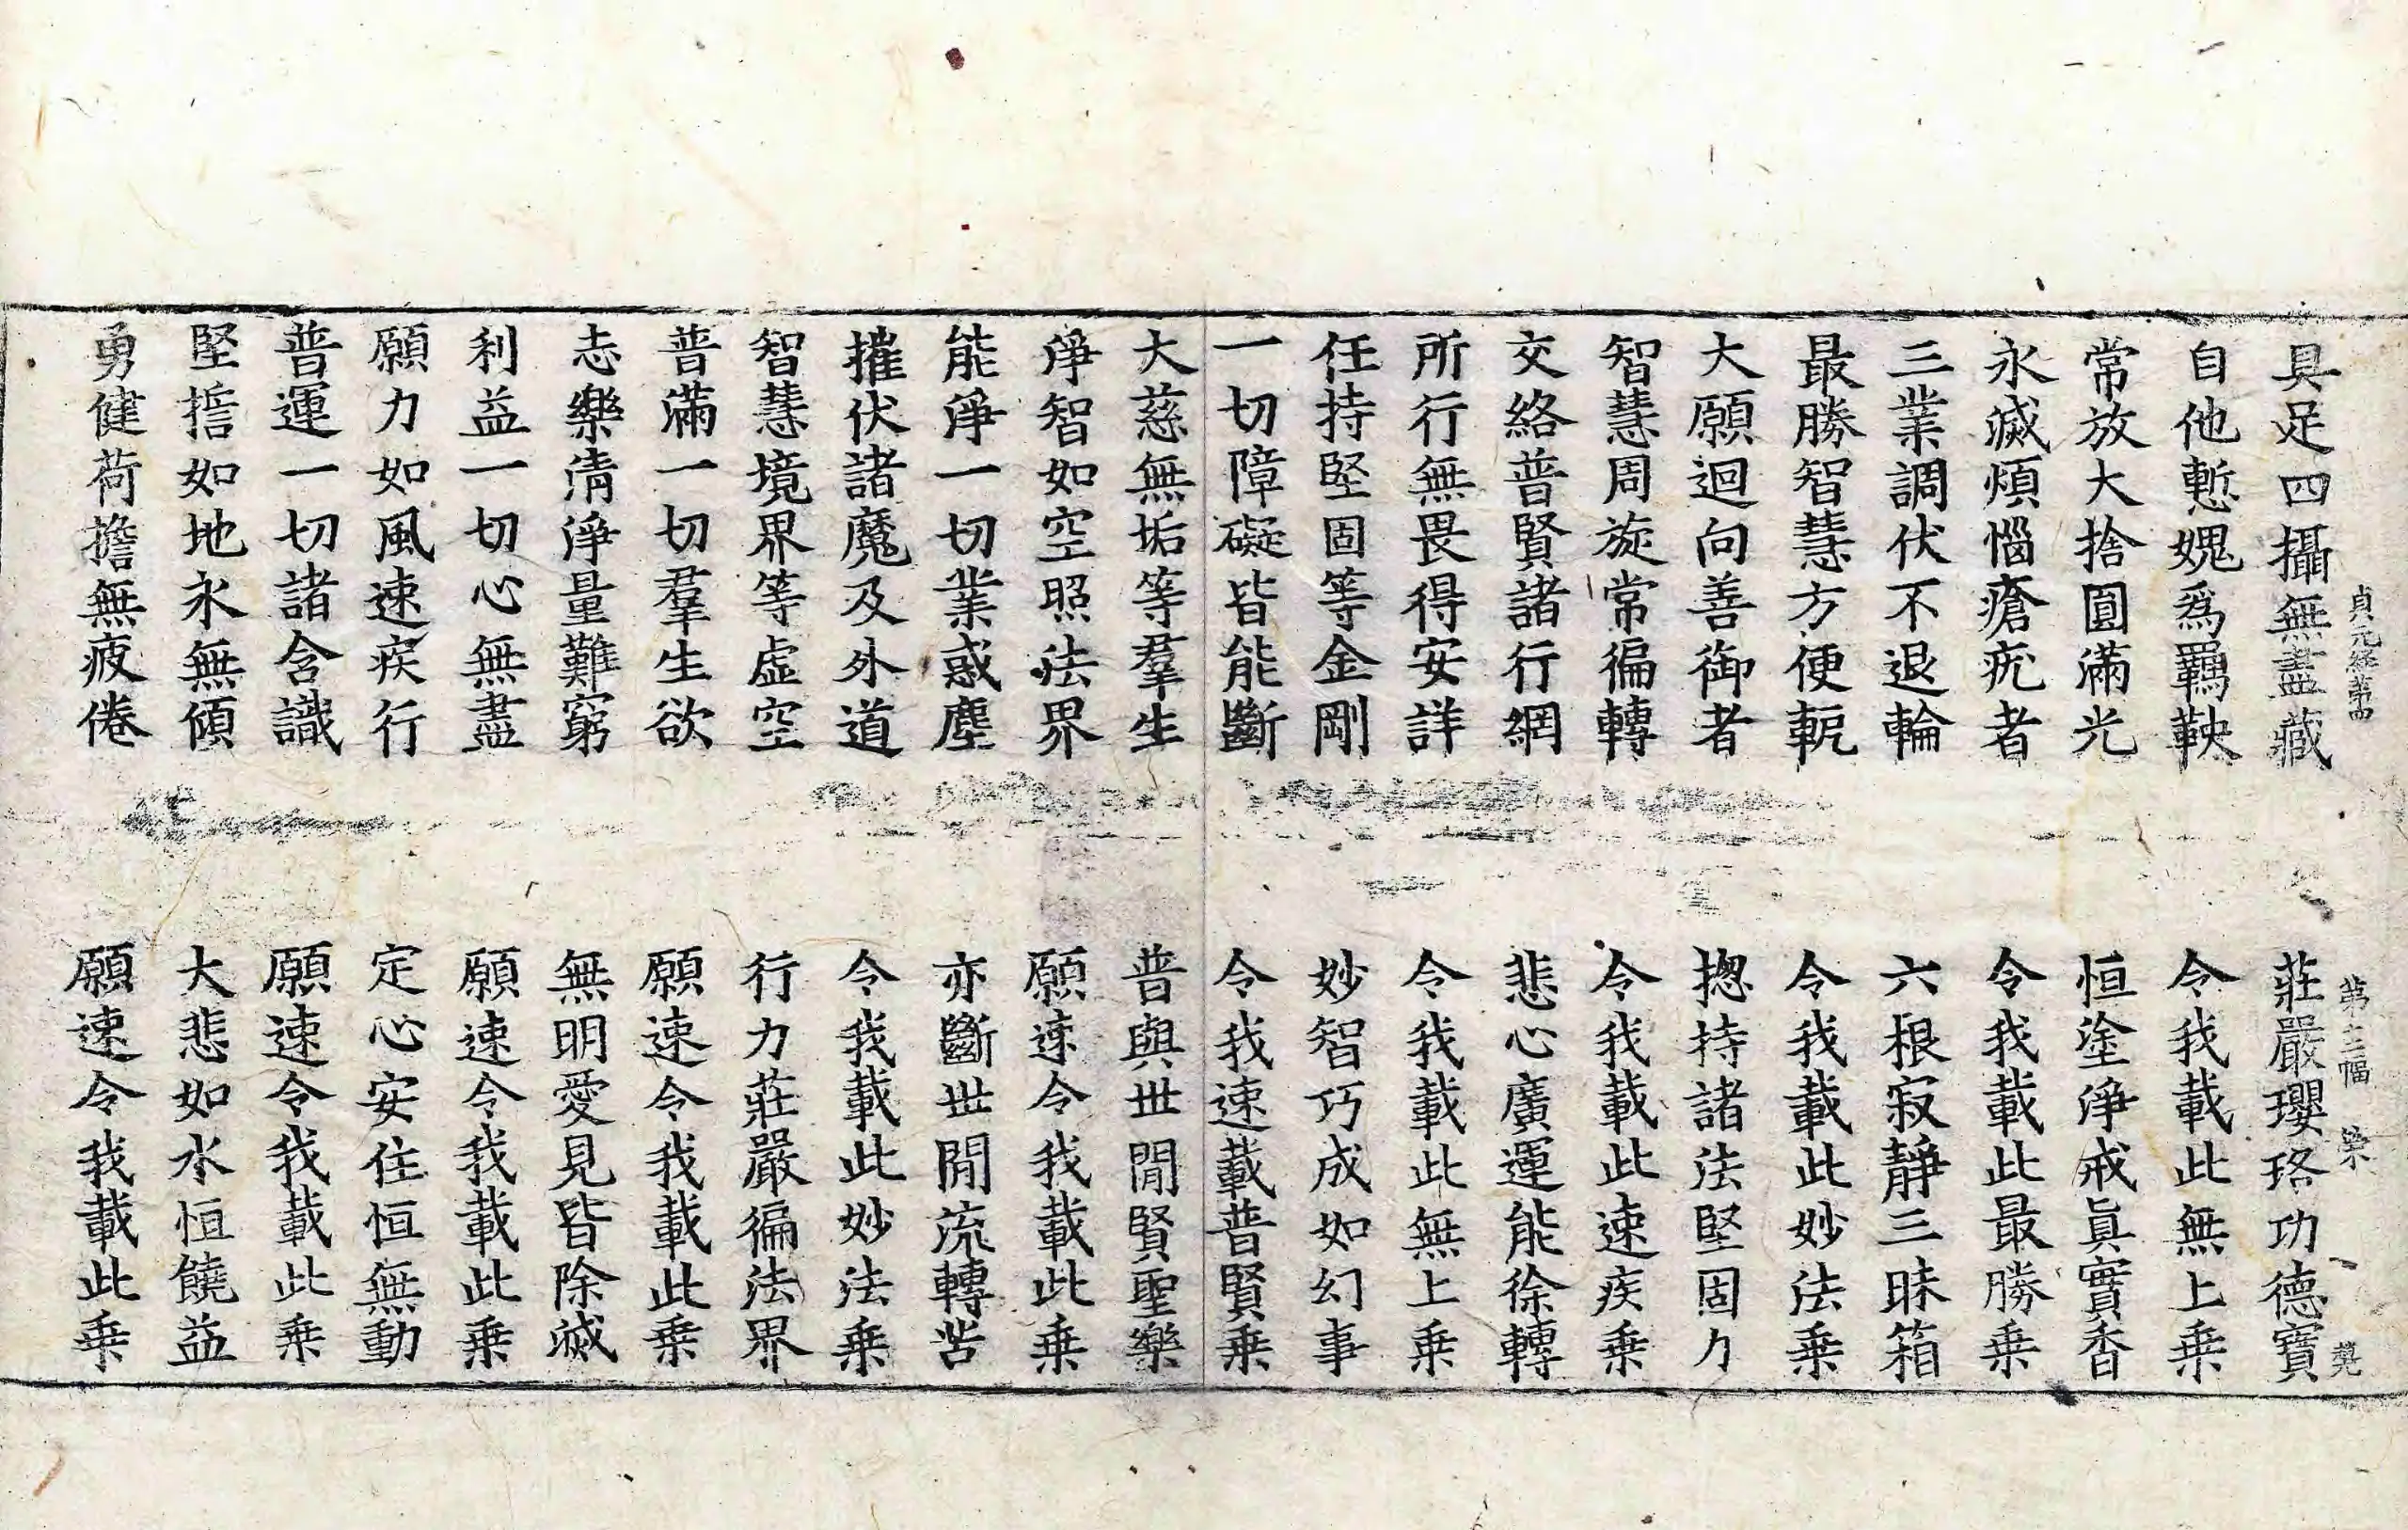 貞元經第四　第十三幅　染
具足四攝無盡藏　莊嚴瓔珞功德寶
自他慙媿爲羈鞅　令我載此無上乗
常放大捨圓滿光　恒塗淨戒眞實香
永滅煩惱瘡疣者　令我載此最勝乗
三業調伏不退輪　六根寂靜三昧箱
最勝智慧方便軛　令我載此妙法乗
大願迴向善御者　揔持諸法堅固力
智慧周旋常徧轉　令我載此速疾乗
交絡普賢諸行網　悲心廣運能徐轉
所行無畏得安詳　令我載此無上乗
任持堅固等金剛　妙智巧成如幻事
一切障礙皆能斷　令我速載普賢乗
大慈無垢等羣生　普與世閒賢聖樂
淨智如空照法界　願速令我載此乗
能淨一切業惑塵　亦斷世閒流轉苦
摧伏諸魔及外道　令我載此妙法乗
智慧境界等虛空　行力莊嚴徧法界
普滿一切羣生欲　願速令我載此乗
志樂淸淨量難窮　無明愛見皆除滅
利益一切心無盡　願速令我載此乗
願力如風速疾行　定心安住恒無動
普運一切諸含識　願速令我載此乗
堅擔如地永無傾　大悲如水恒饒益
勇健荷擔無疲倦　願速令我載此乗